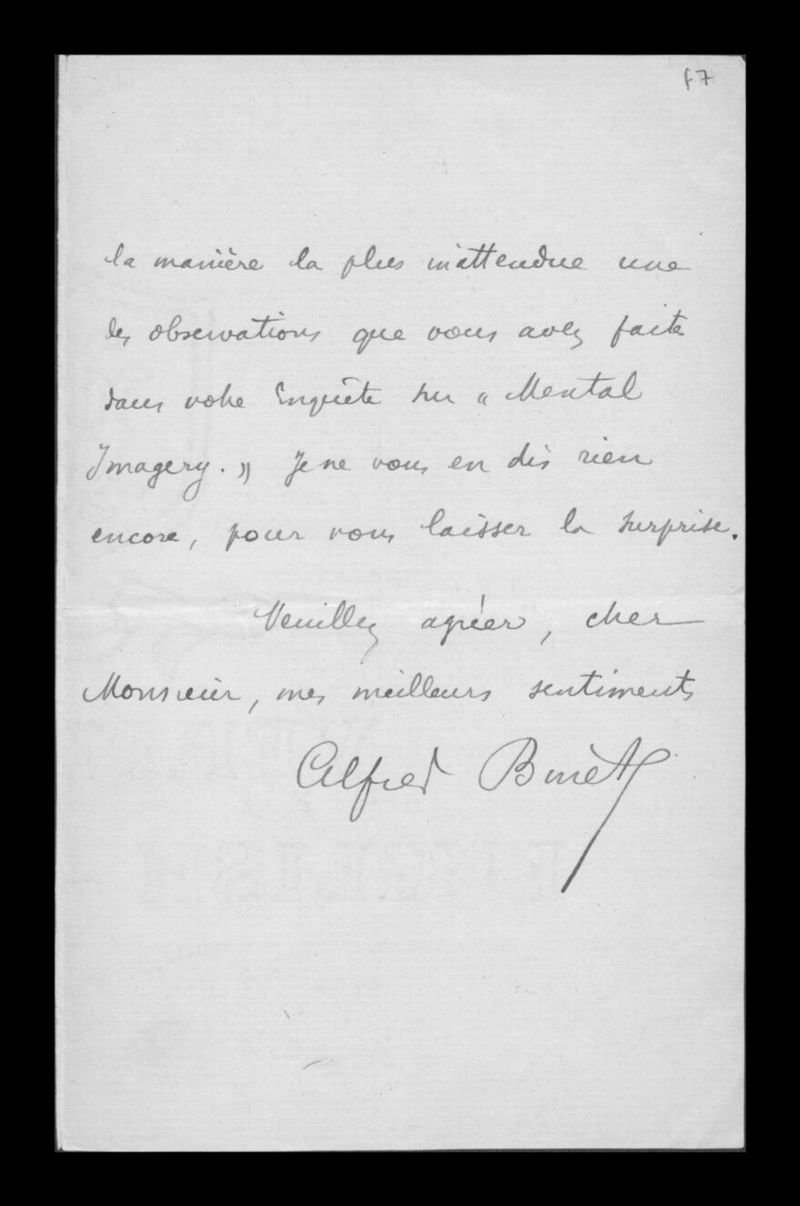 f7
la manière la plus inattendue une
des observations que vous avez faite
dans votre Enquête sur « Mental
Imagery. » Je ne vous en dis rien
encore, pour vous laisser la surprise.
Veuillez agréer, cher
Monsieur, mes meilleurs sentiments
Alfred Binet